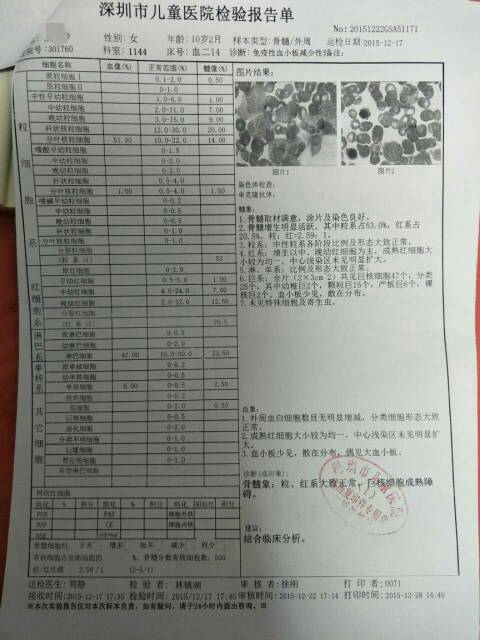 深圳市儿童医院检验报告单
No:20151222GSA51171
性别:女 年龄:10岁2月 样本类型:骨髓/外周 送检日期:2015-12-17
301760 科室:1144 床号:血二14 诊断:免疫性血小板减少性|备注:
细胞名称 血像(%) 正常范围(%) 髓像(%) 图片结果:
粒细胞系
原粒细胞Ⅰ 0.1-2.0 0.50
原粒细胞Ⅱ 0-1.0
中性早幼粒细胞 1.0-6.0 1.00
中幼粒细胞 2.0-11.0 7.00
晚幼粒细胞 3.0-15.0 9.00
杆状核粒细胞 12.0-30.0 20.00
分叶核粒细胞 51.00 10.0-22.0 14.00
嗜酸早幼粒细胞 0-1.5
中幼粒细胞 0-2.0
晚幼粒细胞 0-2.0
杆状核粒细胞 0.5-4.0
分叶核粒细胞 1.00 0.5-4.0 1.50
嗜碱早幼粒细胞 0-0.2
中幼粒细胞 0-0.5
晚幼粒细胞 0-0.5
杆状核粒细胞 0-1.0
分叶核粒细胞 0-1.0
分裂粒细胞
(粒系计) 53
红细胞系
原红细胞 0-2.0
早幼红细胞 0.5-5.0 1.00
中幼红细胞 2.0-24.0 7.00
晚幼红细胞 2.0-12.0 12.50
分裂红细胞
(红系计) 20.5
淋巴系
原淋巴细胞 0-0.5
幼淋巴细胞 0-2.0
淋巴细胞 42.00 10.0-30.0 23.50
单核系
原单核细胞 0-0.2
幼单核细胞 0-0.5
单核细胞 6.00 0-0.5 2.50
其它细胞
组织细胞 0-0.2
浆细胞 0-2.0 0.50
巨核细胞 0-0.5
退化细胞 0-2.0
分类不明细胞 0-1.0
巨噬细胞 0-1.0
脂肪细胞 0-1.0
异型淋巴细胞
图片1 图片2
染色体检查:
单克隆抗体:
髓象:
1.骨髓取材满意,涂片及染色良好。
2.骨髓增生明显活跃,其中粒系占53.0%,红系占
20.5%,粒:红=2.59:1。
3.粒系:中性粒系各阶段比例及形态大致正常。
4.红系:增生以中、晚幼红细胞为主,成熟红细胞大
小较为均一,中心浅染区未见明显扩大。
5.淋、单系:比例及形态大致正常。
6.巨系:全片(2×3cm2)共见巨核细胞47个,分类
25个,其中幼稚巨2个,颗粒巨15个,产板巨6个,裸
核巨2个,血小板少见,散在分布。
7.未见特殊细胞及寄生虫。
血象:
1.外周血白细胞数目无明显增减,分类细胞形态大致
正常。
2.成熟红细胞大小较为均一,中心浅染区未见明显扩
大。
3.血小板少见,散在分布,偶见大血小板。
诊断(或印象):
骨髓象:粒、红系大致正常,巨核细胞成熟障
碍。
建议:
结合临床分析。
深圳市儿童医
复印件专用章
网织红细胞
组化 % 积分 组化 % 积分 组化 阳阳性 积分
POX PAS 细胞外铁
NAP 细胞内铁
骨髓增生 正常 增末 极末 减少 极少
有核细胞占全部细胞的 %、骨髓分数有核细胞数:500
粒/红比值 2.59/1 (2-5/1)
送检医生:荀静 检验者:林镇湖 审核者:徐刚 打印者:0071
接收时间:2015-12-17 17:35 检验时间:2015/12/17 17:40 审核时间:2015-12-22 17:14 打印时间:2015-12-28 14:40
※本次实验报告仅对本次标本负责,如有疑问,请于24小时内提出咨询。※